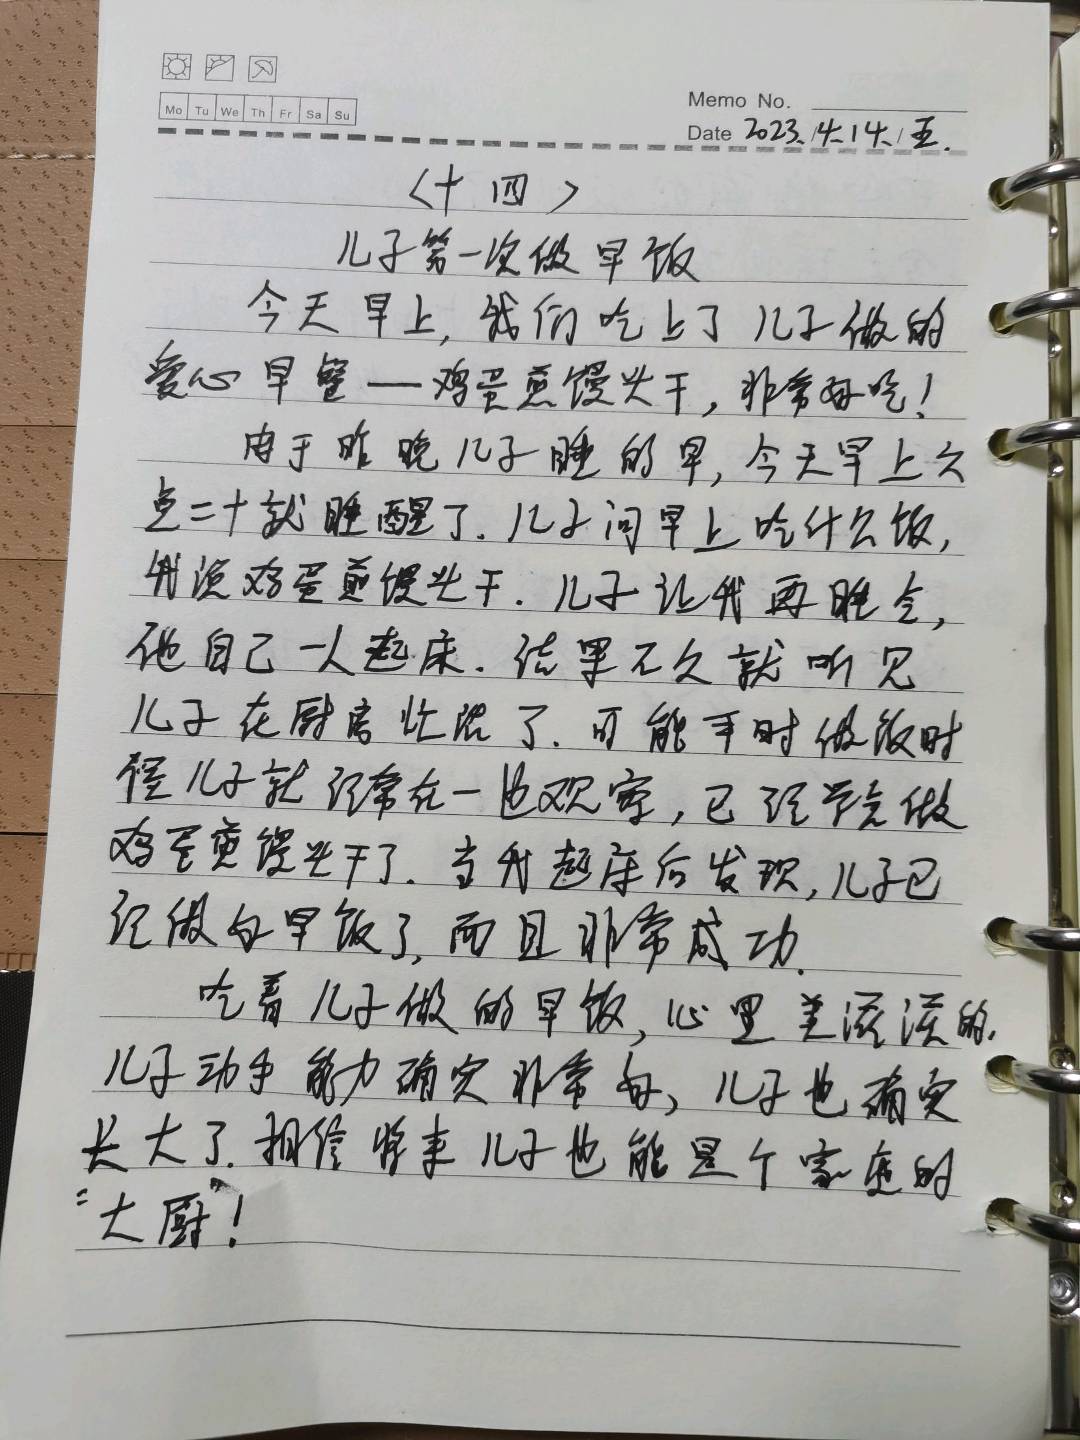 Mo Tu We Th Fr Sa Su
Memo No.
Date 2023./4.14./五.
〈十四〉
儿子第一次做早饭
今天早上,我们吃上了儿子做的
爱心早餐——鸡蛋煎馒头干,非常好吃!
由于昨晚儿子睡的早,今天早上六
点二十就睡醒了.儿子问早上吃什么饭,
我说鸡蛋煎馒头干.儿子让我再睡会,
他自己一人起床.结果不久就听见
儿子在厨房忙活了.可能平时做饭时
候儿子就经常在一边观察,已经学会做
鸡蛋煎馒头干了.当我起床后发现,儿子已
经做好早饭了,而且非常成功.
吃着儿子做的早饭,心里美滋滋的.
儿子动手能力确实非常好,儿子也确实
长大了.相信将来儿子也能是个家庭的
“大厨”!